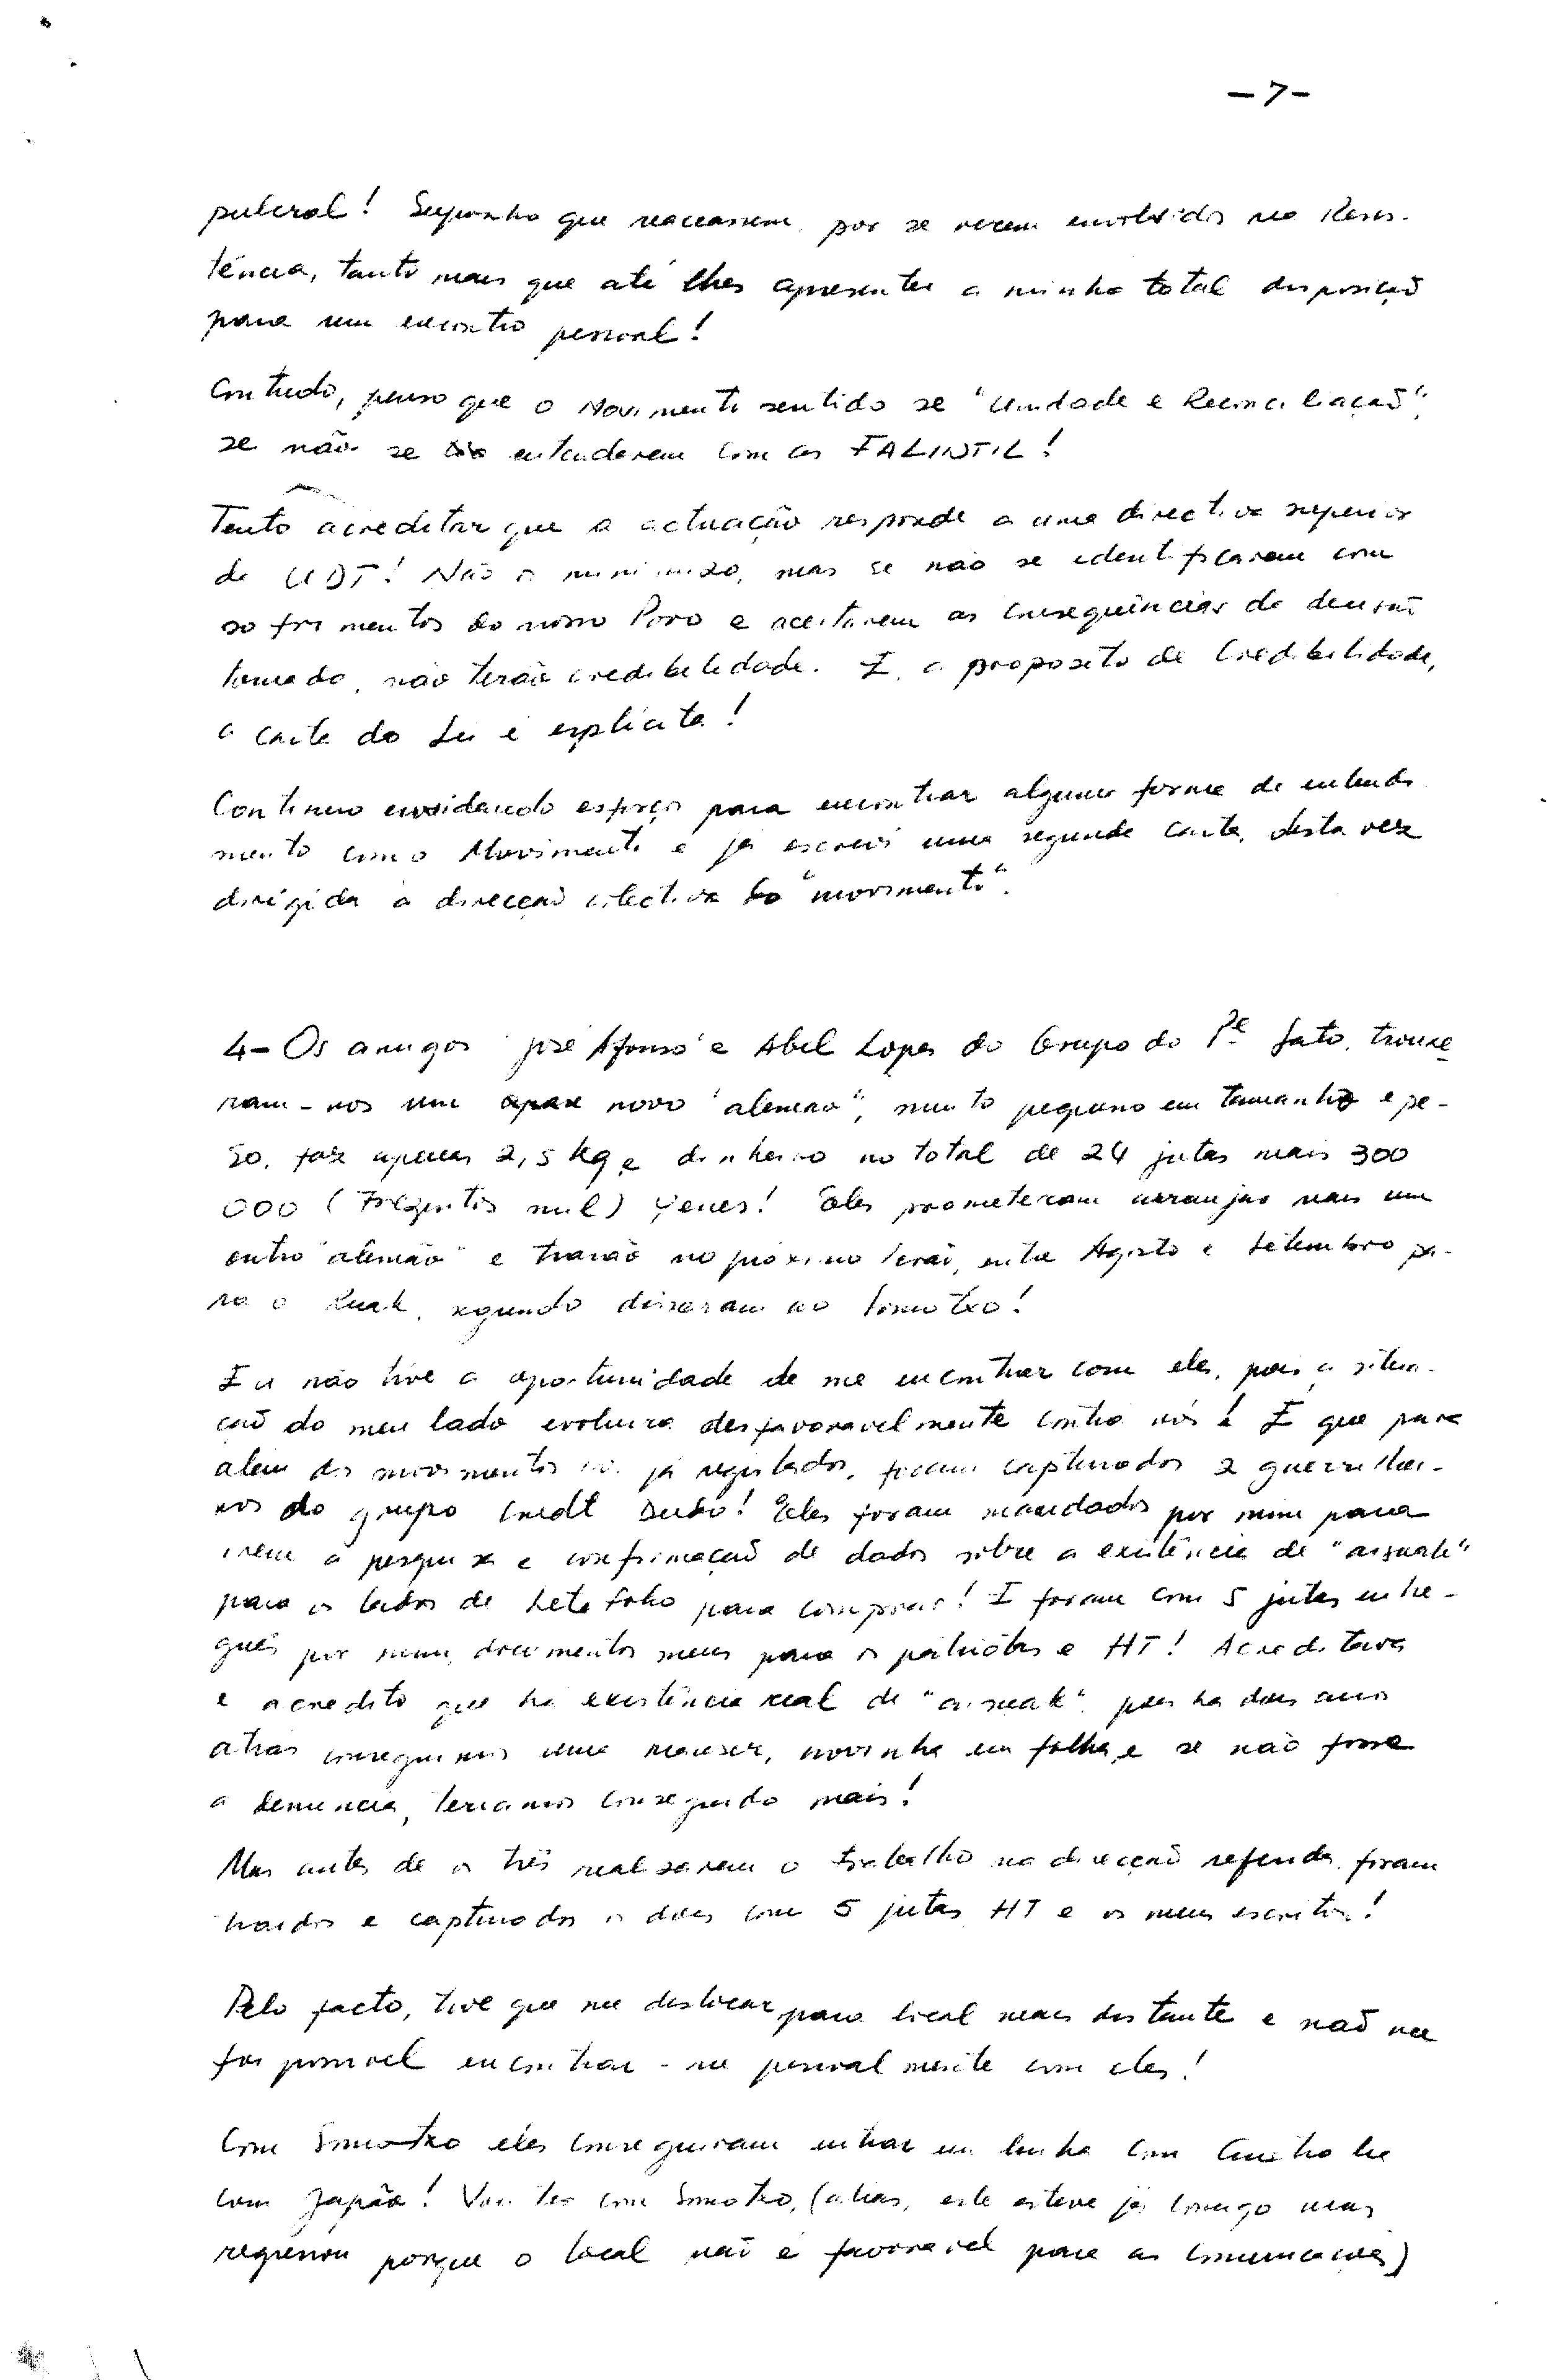 - 7 -
pulcral! Suponho que receassem, por se verem envolvidos na Resis-
tência, tanto mais que até lhes apresentei a minha total disposição
para um encontro pessoal!
Contudo, penso que o Movimento sentido se "Unidade e Reconciliação",
se não se entenderem com as FALINTIL!
Tento acreditar que a actuação responde a uma directiva superior
da UDT! Não o minimizo, mas se não se identificarem com
sofrimentos do nosso Povo e aceitarem as consequências da decisão
tomada, não terão credibilidade. E, a proposito de credibilidade,
a carta do Lu é explicita!
Continuo envidando esforços para encontrar alguma forma de entendi
mento com o Movimento e já escrevi uma segunda carta, desta vez
dirigida à direcção colectiva do "movimento".
4- Os amigos José Afonso e Abel Lopes do Grupo do Pe. Sato, trouxe
ram-nos um novo "alemão", muito pequeno em tamanho e pe-
so, faz apenas 2,5 kg e dinheiro no total de 24 jutas mais 300
000 (Trezentos mil) yenes! Eles prometeram arranjar mais um
outro "alemão" e trarão no próximo verão, entre Agosto e Setembro pa-
ra o segundo disseram ao
Eu não tive a oportunidade de me encontrar com eles, pois a situa-
ção do meu lado evoluira desfavoravelmente contra nós! E que para
alem dos movimentos já registados, foram capturados 2 guerrilhei-
ros do grupo Cmdt! Eles foram mandados por mim para
irem à pesquisa e confirmação de dados sobre a existência de
para os lados de Letefoho para comprar! E foram com 5 jutas entre-
gues por mim, documentos meus para os patriótas e HT! Acreditava
e acredito que ha existência real de pois ha dois anos
atras conseguimos uma mauser, novinha em folha, e se não fosse
a denuncia, teriamos conseguido mais!
Mas antes de os três realizarem o trabalho na direcção referida, foram
traidos e capturados os dois com 5 jutas, HT e os meus escritos!
Pelo facto, tive que me deslocar para local mais distante e não me
foi possivel encontrar-me pessoalmente com eles!
Com eles conseguiram entrar em linha com
com Japão! Vou ter com (alias, este esteve já comigo mas
regressou porque o local não é favoravel para as comunicações)